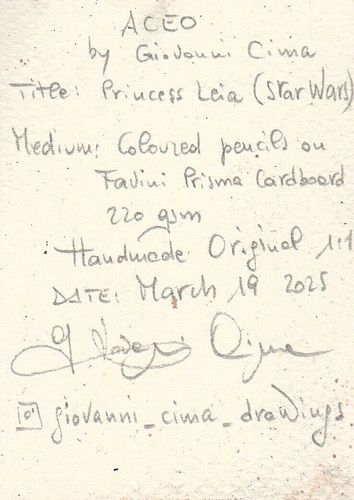 ACEO
by Giovanni Cima
Title: Princess Leia (Star Wars)
Medium: Coloured pencils on
Favini Prisma Cardboard
220 gsm
Handmade Original 1:1
DATE: March 19 2025
Giovanni Cima
giovanni_cima_drawings